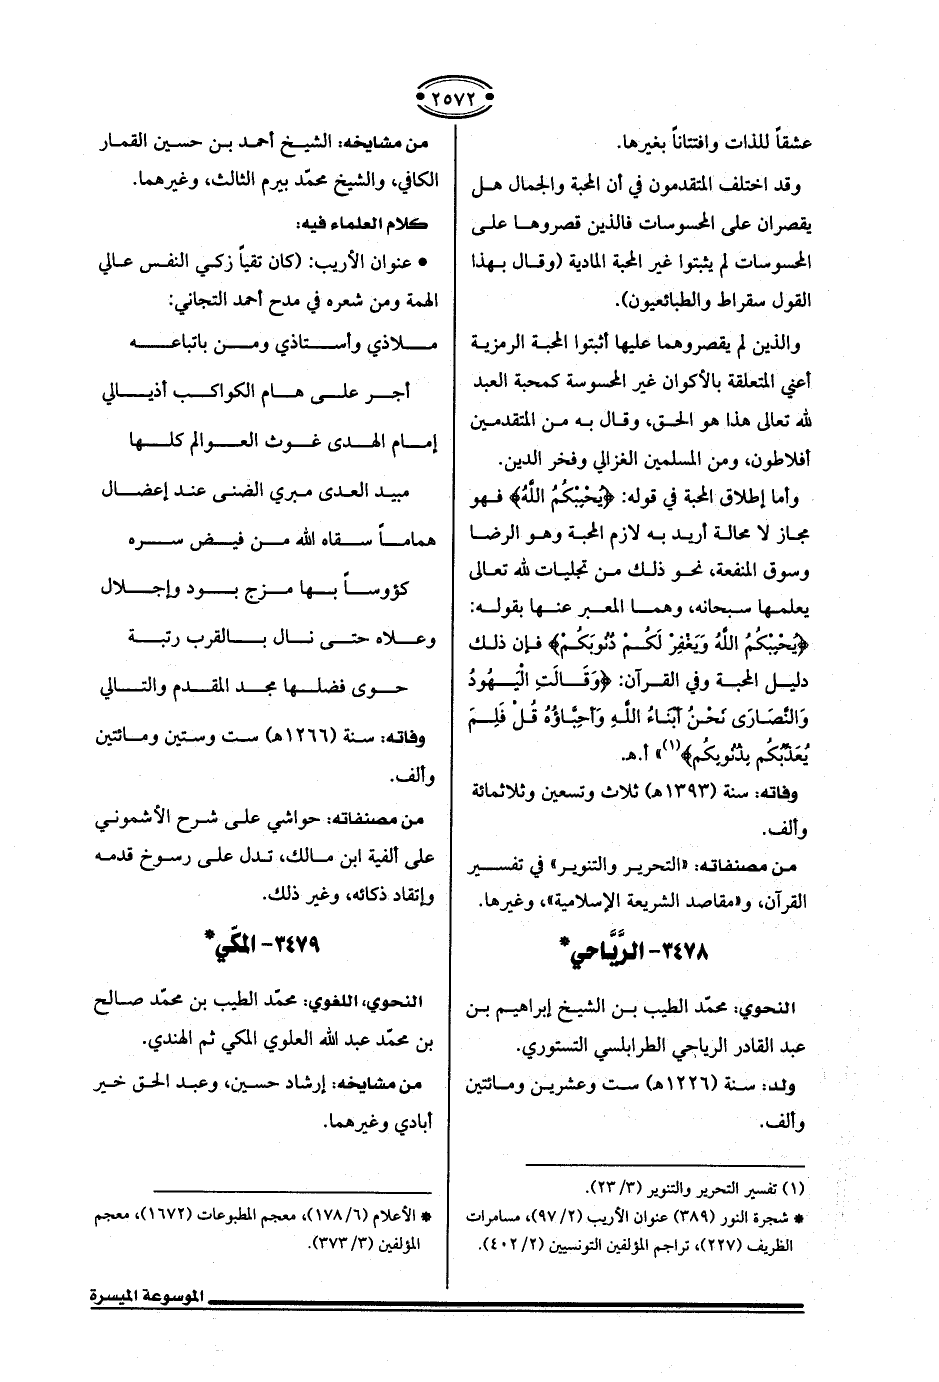 ٢٥٧٢
عشقاً للذات وافتتاناً بغيرها.
وقد اختلف المتقدمون في أن المحبة والجمال هل
يقصران على المحسوسات فالذين قصروها على
المحسوسات لم يثبتوا غير المحبة المادية (وقال بهذا
القول سقراط والطبائعيون).
والذين لم يقصروهما عليها أثبتوا المحبة الرمزية
أعني المتعلقة بالأكوان غير المحسوسة كمحبة العبد
لله تعالى هذا هو الحق، وقال به من المتقدمين
أفلاطون، ومن المسلمين الغزالي وفخر الدين.
وأما إطلاق المحبة في قوله: ﴿يُحْبِبْكُمُ اللَّهُ﴾ فهو
مجاز لا محالة أريد به لازم المحبة وهو الرضا
وسوق المنفعة، نحو ذلك من تجليات لله تعالى
يعلمها سبحانه، وهما المعبر عنها بقوله:
﴿يُحْبِبْكُمُ اللَّهُ وَيَغْفِرْ لَكُمْ ذُنُوبَكُمْ﴾ فإن ذلك
دليل المحبة وفي القرآن: ﴿وَقَالَتِ الْيَهُودُ
وَالنَّصَارَى نَحْنُ أَبْنَاءُ اللَّهِ وَأَحِبَّاؤُهُ قُلْ فَلِمَ
يُعَذِّبُكُم بِذُنُوبِكُم﴾(١)» أ.هـ.
وفاته: سنة (١٣٩٣هـ) ثلاث وتسعين وثلاثمائة
وألف.
من مصنفاته: «التحرير والتنوير» في تفسير
القرآن، و«مقاصد الشريعة الإسلامية»، وغيرها.
٣٤٧٨- الرَّيَّاحي*
النحوي: محمّد الطيب بن الشيخ إبراهيم بن
عبد القادر الرياحي الطرابلسي التستوري.
ولد: سنة (١٢٢٦هـ) ست وعشرين ومائتين
وألف.
(١) تفسير التحرير والتنوير (٢٣/٣).
* شجرة النور (٣٨٩) عنوان الأريب (٩٧/٢)، مسامرات
الظريف (٢٢٧)، تراجم المؤلفين التونسيين (٤٠٢/٢).
من مشايخه: الشيخ أحمد بن حسين القمار
الكافي، والشيخ محمّد بيرم الثالث، وغيرهما.
كلام العلماء فيه:
• عنوان الأريب: (كان تقياً زكي النفس عالي
الهمة ومن شعره في مدح أحمد التجاني:
ملاذي وأستاذي ومن باتباعه
أجر على هام الكواكب أذيالي
إمام الهدى غوث العوالم كلها
مبيد العدى مبري الضنى عند إعضال
هماماً سقاه الله من فيض سره
كؤوساً بها مزج بود وإجلال
وعلاه حتى نال بالقرب رتبة
حوى فضلها مجد المقدم والتالي
وفاته: سنة (١٢٦٦هـ) ست وستين ومائتين
وألف.
من مصنفاته: حواشي على شرح الأشموني
على ألفية ابن مالك، تدل على رسوخ قدمه
وإتقاد ذكائه، وغير ذلك.
٣٤٧٩- المكّي*
النحوي، اللغوي: محمّد الطيب بن محمّد صالح
بن محمّد عبد الله العلوي المكي ثم الهندي.
من مشايخه: إرشاد حسين، وعبد الحق خير
أبادي وغيرهما.
* الأعلام (١٧٨/٦)، معجم المطبوعات (١٦٧٢)، معجم
المؤلفين (٣٧٣/٣).
الموسوعة الميسرة